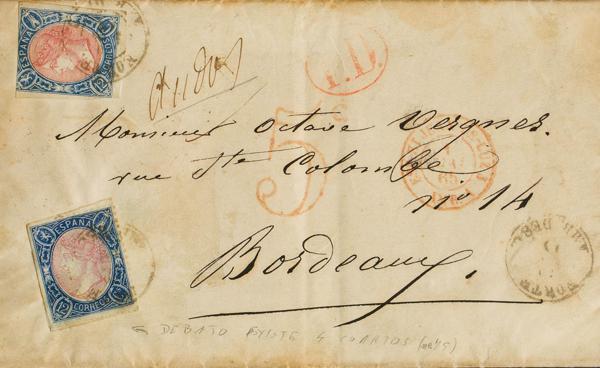 ESPAÑA
12 CORREOS 12
P.D.
5
Monsieur Octave Vergnes.
rue Ste Colombe
nº 14
Bordeaux,
ESPAÑA
12 CORREOS
NORTE
DEBAJO EXISTE 4 CUARTOS